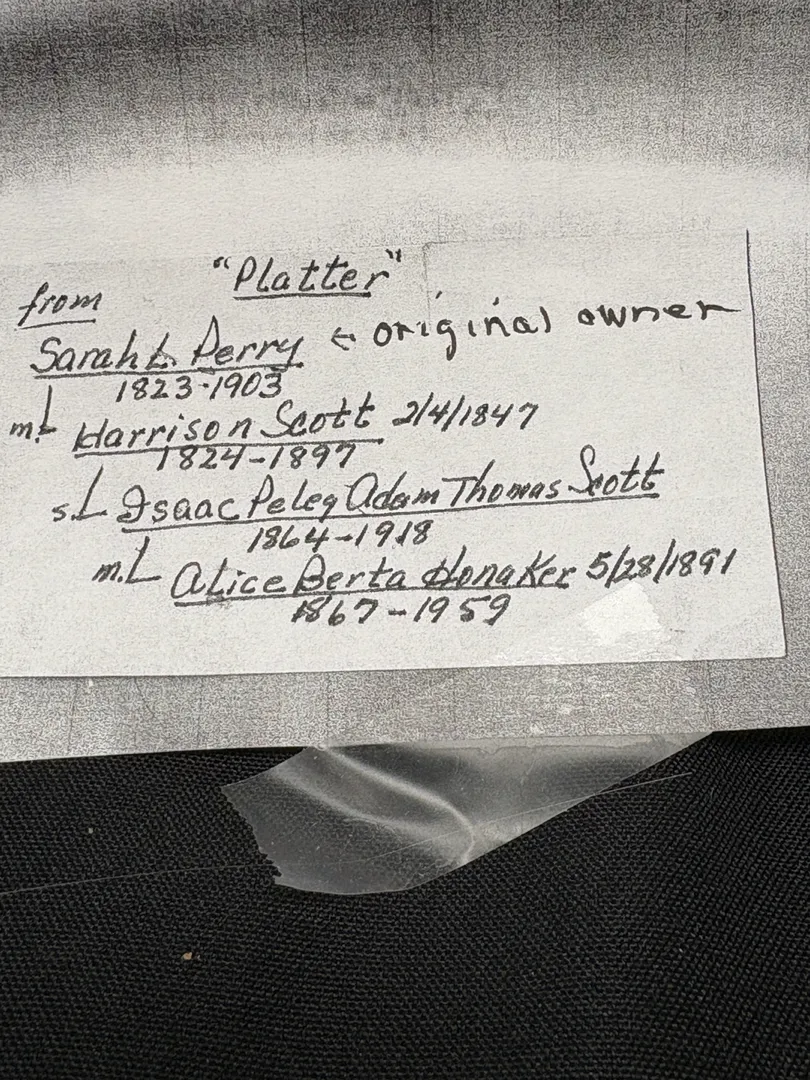 "Platter"
from
Sarah L. Perry ← original owner
1823-1903
m. Harrison Scott 2/4/1847
1824-1897
s. Isaac Peleg Adam Thomas Scott
1864-1918
m. Alice Berta Honaker 5/28/1891
1867-1959